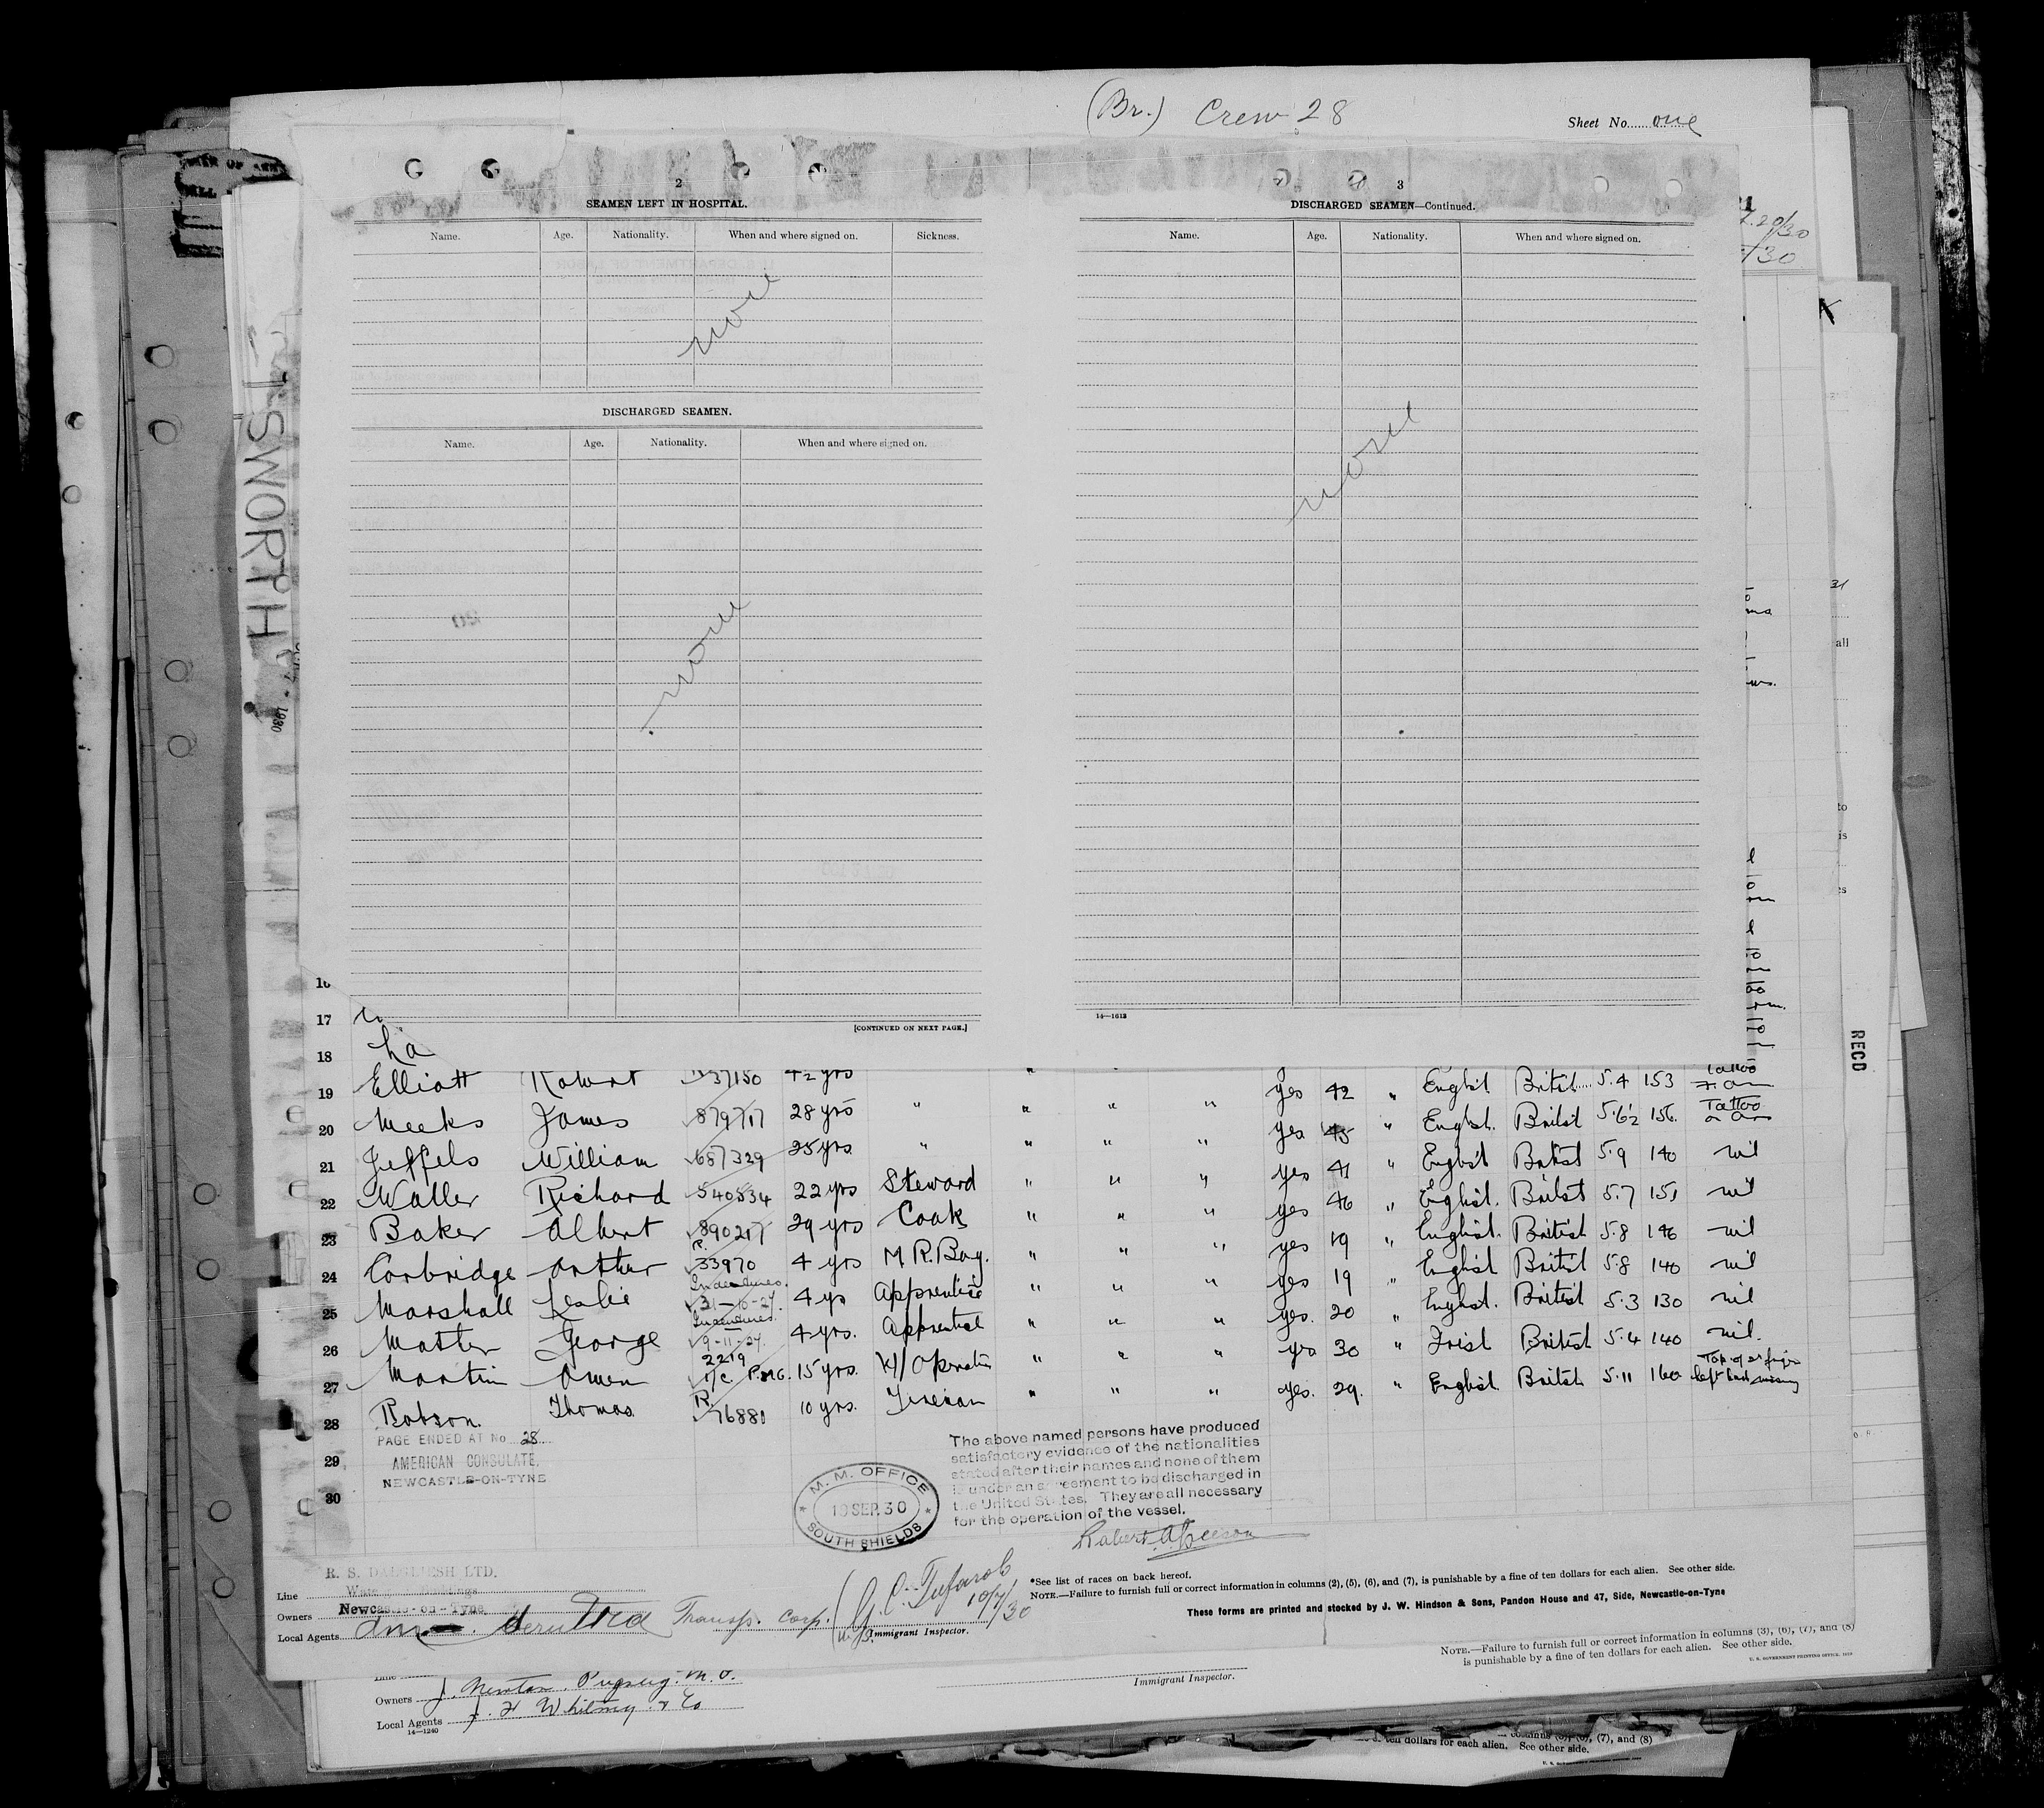 (Br.) Crew 28
Sheet No. one
2
SEAMEN LEFT IN HOSPITAL.
Name. Age. Nationality. When and where signed on. Sickness.
none
DISCHARGED SEAMEN.
Name. Age. Nationality. When and where signed on.
none
[CONTINUED ON NEXT PAGE.]
3
DISCHARGED SEAMEN—Continued.
Name. Age. Nationality. When and where signed on.
none
14—1613
SWORTH
1930
RECD
16
17
18 ha
19 Elliott Robert 37150 42 yrs " " yes 42 " English British 5.4 153 Tattoo
20 Meeks James 879717 28 yrs " " " " yes 45 " English. British 5.6½ 156 Tattoo
21 Jeffels William 687329 25 yrs " " " " yes 41 " English British 5.9 140 nil
22 Waller Richard 540534 22 yrs Steward " " " yes 46 " English. British 5.7 151 nil
23 Baker Albert 890217 29 yrs Cook " " " yes 19 " English. British 5.8 146 nil
24 Corbridge Arthur R. 33970 4 yrs M.R. Boy. " " " yes 19 " English British 5.8 140 nil
25 Marshall Leslie Indentures. 31-10-27. 4 yrs Apprentice " " " yes. 20 " English. British 5.3 130 nil
26 Master George Indentures. 9-11-27. 4 yrs. Apprentice " " " yes 30 " Irish British 5.4 140 nil.
27 Martin Owen 2219 1/C P.M.G. 15 yrs. W/Operator " " " yes. 29. " English British 5.11 160 Top of finger left hand missing
28 Robson Thomas R. 76880 10 yrs. Fireman " " "
29
30
PAGE ENDED AT No 28
AMERICAN CONSULATE,
NEWCASTLE-ON-TYNE
M. M. OFFICE
19 SEP. 30
SOUTH SHIELDS
The above named persons have produced
satisfactory evidence of the nationalities
stated after their names and none of them
is under an agreement to be discharged in
the United States. They are all necessary
for the operation of the vessel.
Line R. S. DALGLIESH LTD.
Owners Newcastle-on-Tyne
Local Agents Transp. Corp.
10/7/30
Immigrant Inspector.
*See list of races on back hereof.
NOTE.—Failure to furnish full or correct information in columns (2), (5), (6), and (7), is punishable by a fine of ten dollars for each alien. See other side.
These forms are printed and stocked by J. W. Hindson & Sons, Pandon House and 47, Side, Newcastle-on-Tyne
Line
Owners
Local Agents J. H. Whitney & Co
14—1240
Immigrant Inspector.
NOTE.—Failure to furnish full or correct information in columns (3), (6), (7), and (8)
is punishable by a fine of ten dollars for each alien. See other side.
U. S. GOVERNMENT PRINTING OFFICE
columns (3), (6), (7), and (8)
ten dollars for each alien. See other side.